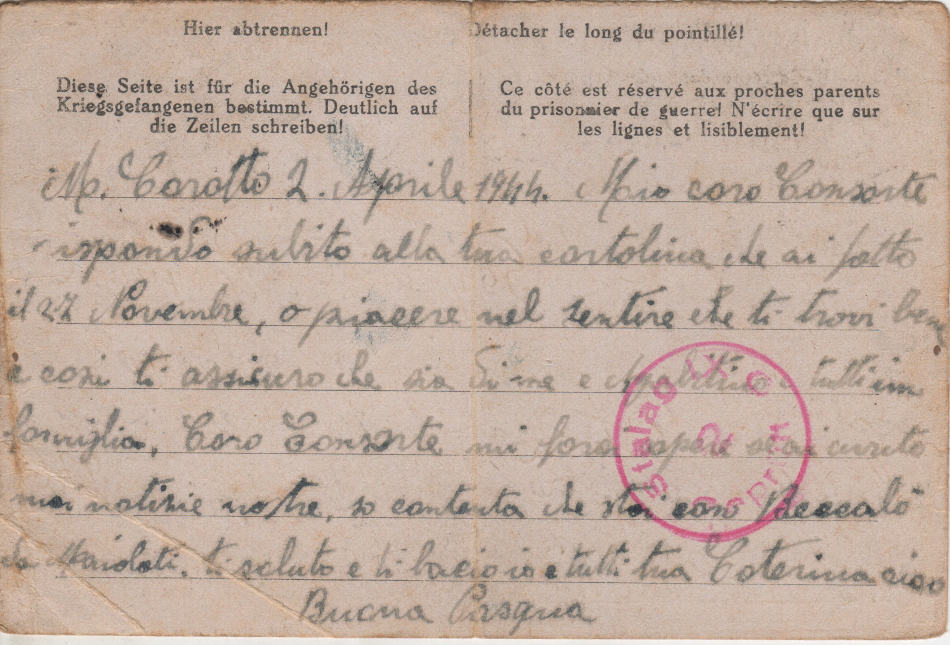 Hier abtrennen!
Détacher le long du pointillé!
Diese Seite ist für die Angehörigen des
Kriegsgefangenen bestimmt. Deutlich auf
die Zeilen schreiben!
Ce côté est réservé aux proches parents
du prisonnier de guerre! N'écrire que sur
les lignes et lisiblement!
M. Corotto 2. Aprile 1944. Mio caro Consorte
rispondo subito alla tua cartolina che ai fatto
il 27 Novembre, o piacere nel sentire che ti trovi bene
e cosi ti assicuro che sia di me e tutti in
famiglia, Caro Consorte mi farai sapere se ai
mai notizie nostre, so contenta che stai con
da ti saluto e ti bacio io e tutti tua Caterina ciao
Buona Pasqua
Stalag IX C
Geprüft